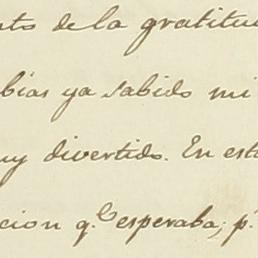 nto de la gratitu
bias ya sabido mi
uy divertido. En est
cion q.e esperaba; p.